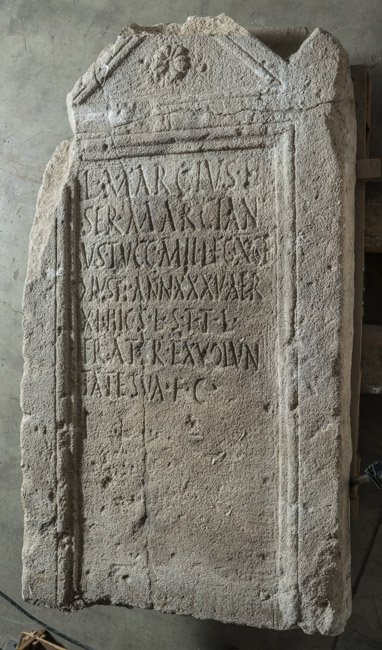 L·MARCIVS·F
SER MARCIAN
VS TVCC MIL LEG X GE
ANN XXXV AER
XVII H·C·S·E·S·T·T·L·
FRATER EX VOLVN
TATE SVA·F·C·